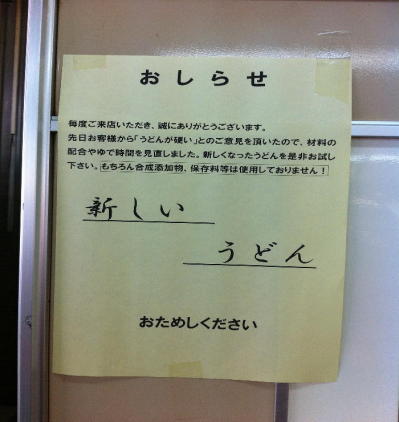 おしらせ
毎度ご来店いただき、誠にありがとうございます。
先日お客様から「うどんが硬い」とのご意見を頂いたので、材料の
配合やゆで時間を見直しました。新しくなったうどんを是非お試し
下さい。もちろん合成添加物、保存料等は使用しておりません！
新しい
うどん
おためしください